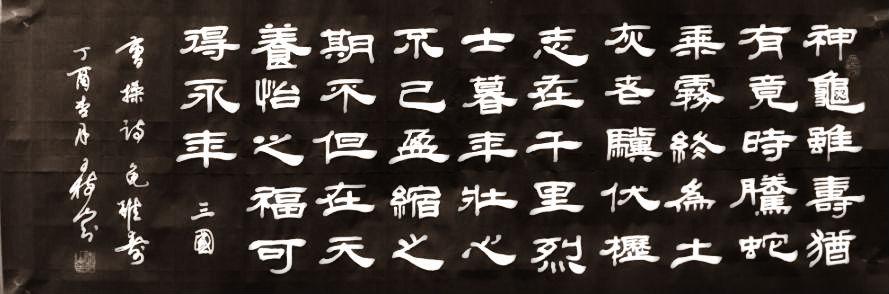 神龜雖壽猶
有竟時騰蛇
乘霧終為土
灰老驥伏櫪
志在千里烈
士暮年壯心
不已盈縮之
期不但在天
養怡之福可
得永年
三國
曹操詩龜雖壽
丁酉杏月